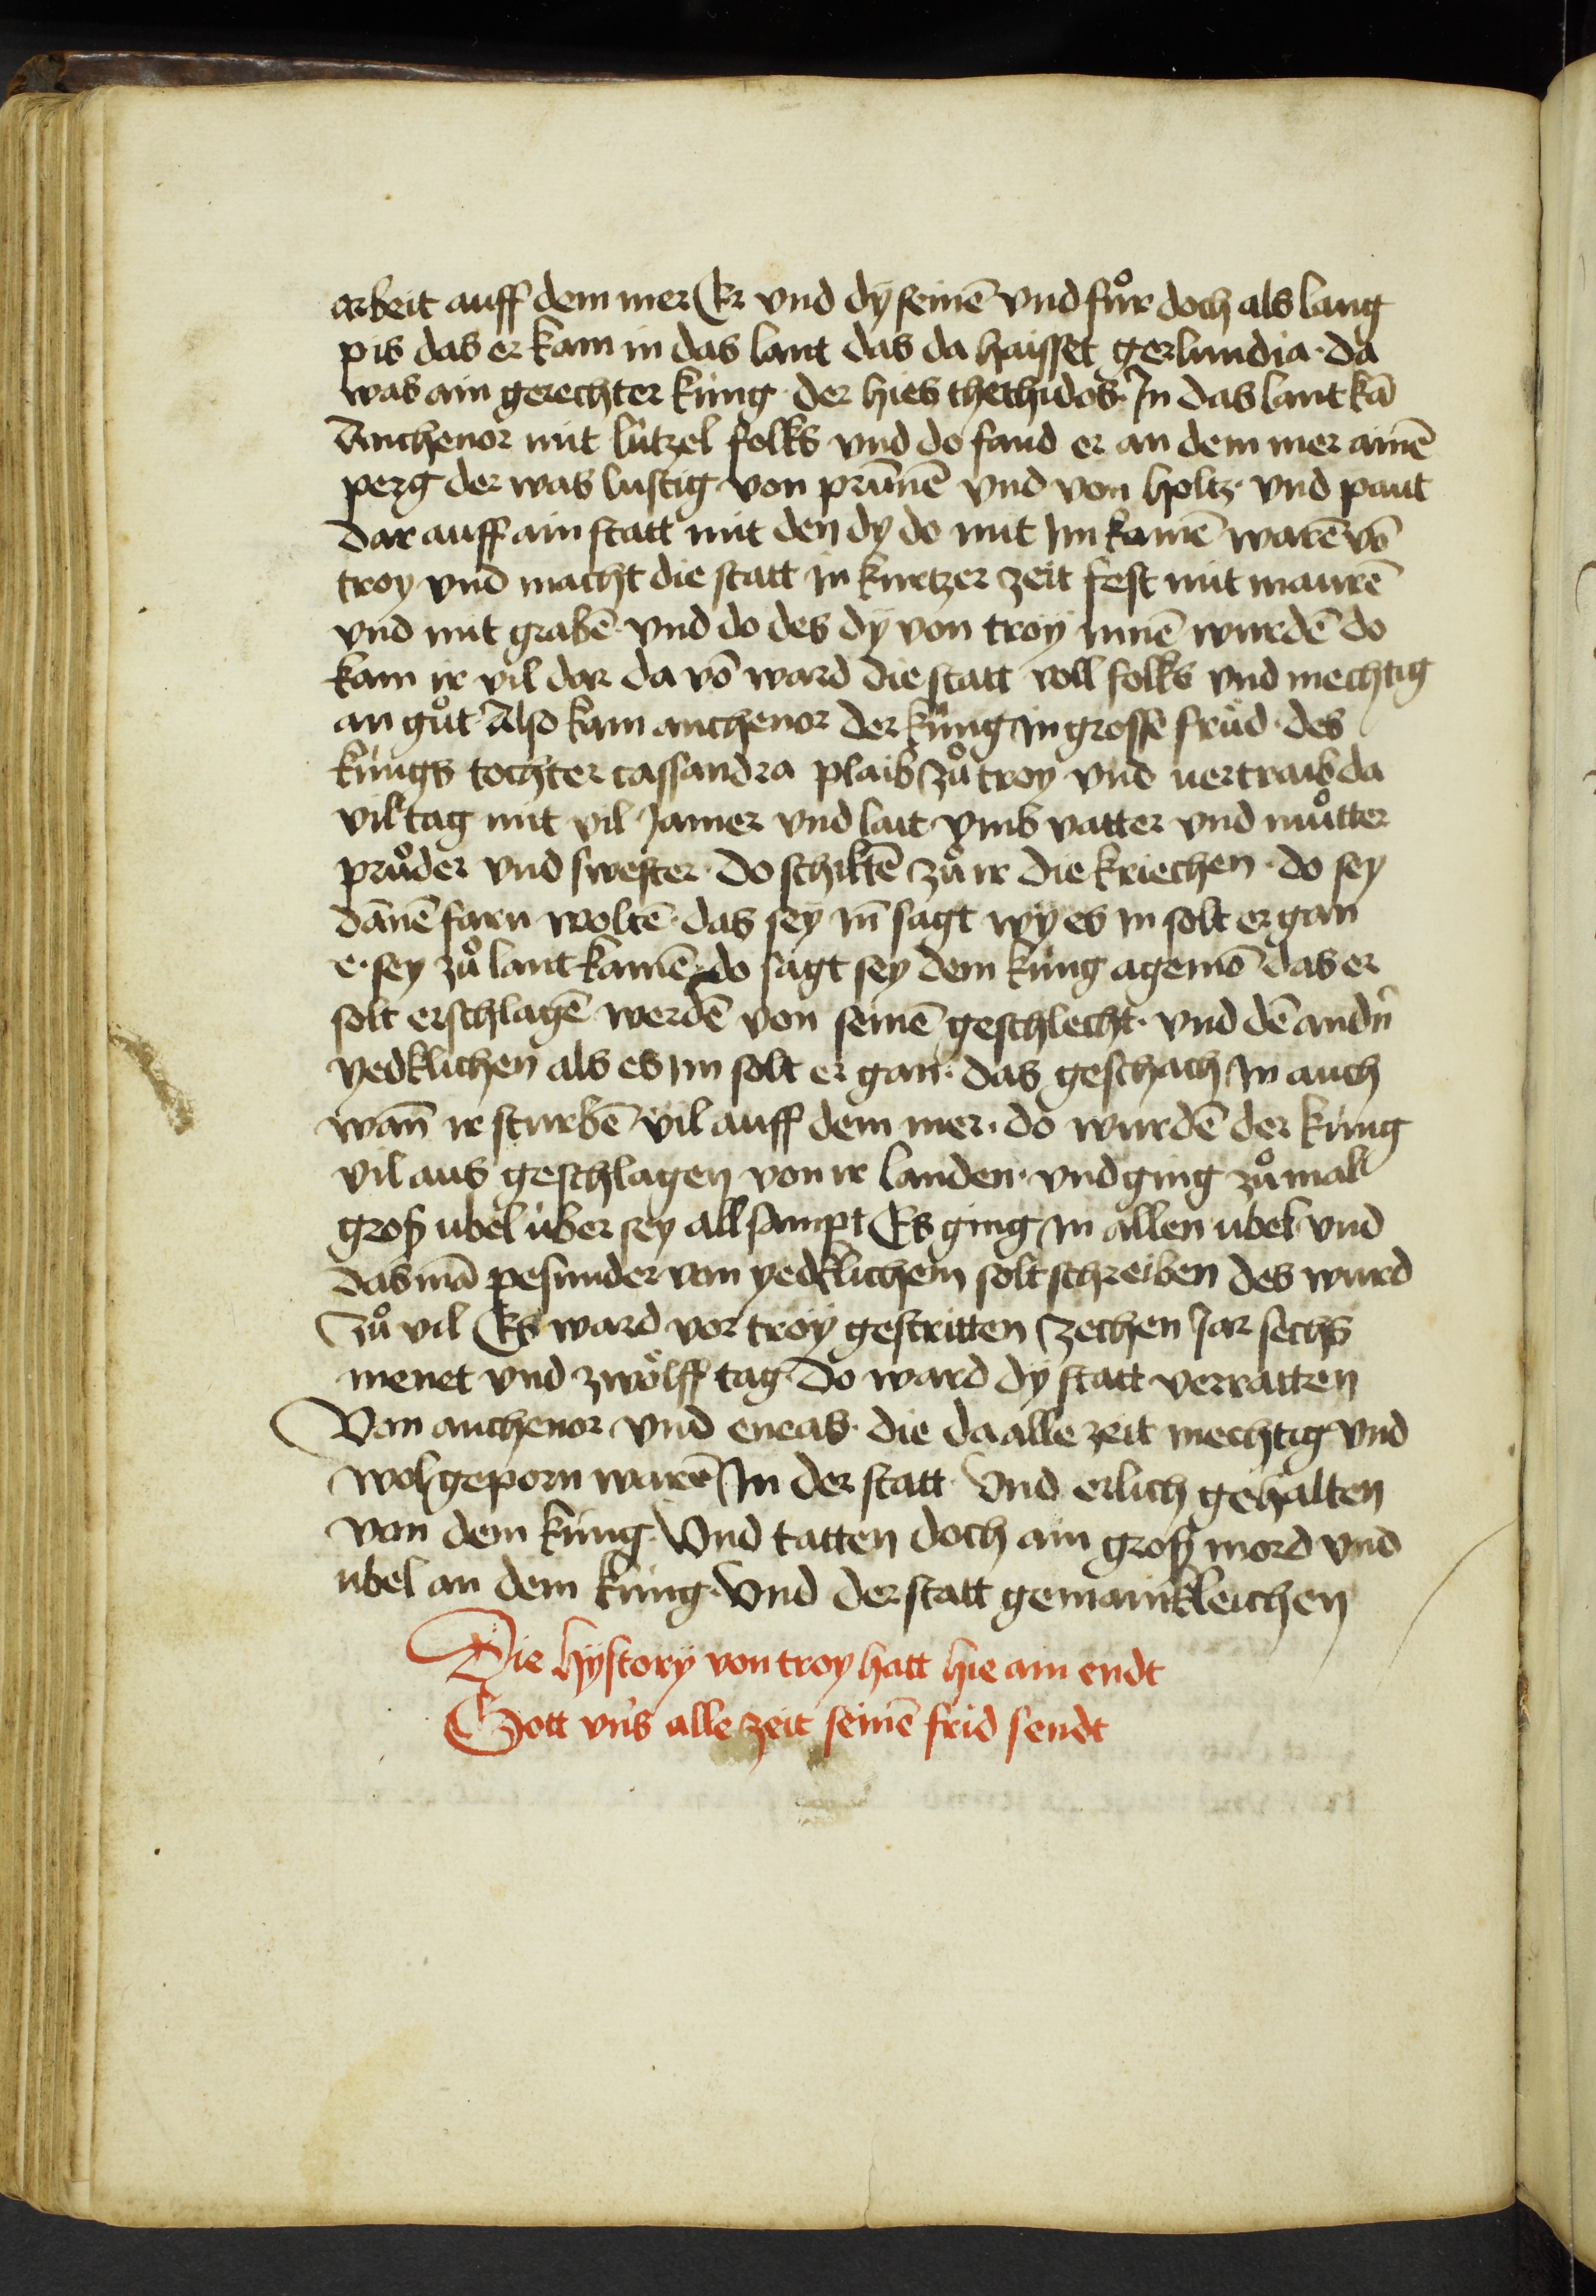 arbeit auff dem mer Er vnd dÿ seinē vnd fuͦr doch als lang
pis das er kam in das lant das da haisset gerlundia · da
was ain gerechter küng · der hies thethidos · In das lant kā
Anthenor mit lützel folks vnd do fand er an dem mer ainē
perg der was lustig von prūnē vnd von holtz · vnd paut
dar auff ain statt mit den dy do mit im kamē warē vō
troy vnd macht die statt in kurtzer zeit fest mit maurē
vnd mit grabē · vnd do des dÿ von troÿ innē wurdē do
kam ir vil dar da vō ward die statt voll folks vnd mechtig
an guͦt Also kam anthenor der küng in grosse früd · des
küngs tochter cassandra plaib zuͦ troy vnd uertraib da
vil tag mit vil Jamer vnd lait vmb vatter vnd muͦtter
pruͦder vnd swester · do schiktē zuͦ ir die kriechen · do sey
dānē farn woltē · das seÿ in̄ sagt wÿ es in solt er gan
e · sey zuͦ lant kamē do sagt sey dem küng agemō das er
solt erschlagē werdē von seinē geschlecht · vnd dē andn̄
yedklichen als es im solt er gan · das geschach in auch
wan̄ ir sturbē vil auff dem mer · do wurdē der küng
vil aus geschlagen von ir landen · vnd ging zuͦ mal
groß übel über sey all sampt Es ging in allen übel vnd
das mā pesunder von yedklichem solt schreiben des wurd
zuͦ vil Es ward vor troÿ gestritten zechen Jar sechs
menet vnd zwölff tag do ward dÿ statt verratten
Von anthenor vnd eneas · die da alle zeit mechtig vnd
wolgeporn warē In der statt · Vnd erlich gehalten
von dem küng · Vnd tatten doch ain groß mord vnd
übel an dem küng · Vnd der statt gemainkleichen
Die hÿstorÿ von troy hatt hie ain endt
Gott vns alle zeit seinē frid sendt